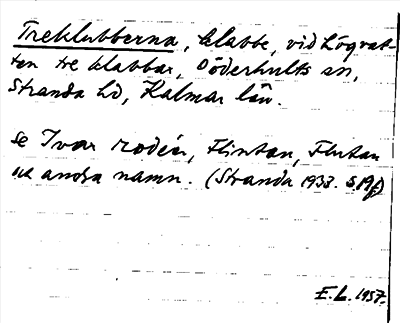 Treklubberna, klabbe, vid Lågvat-
ten tre klabbar, Döderhults sn,
Stranda hd, Kalmar län.
se Ivar Modéer, Flintan, Flutan
och andra namn. (Stranda 1933. S. 19 f)
E.L. 1957.